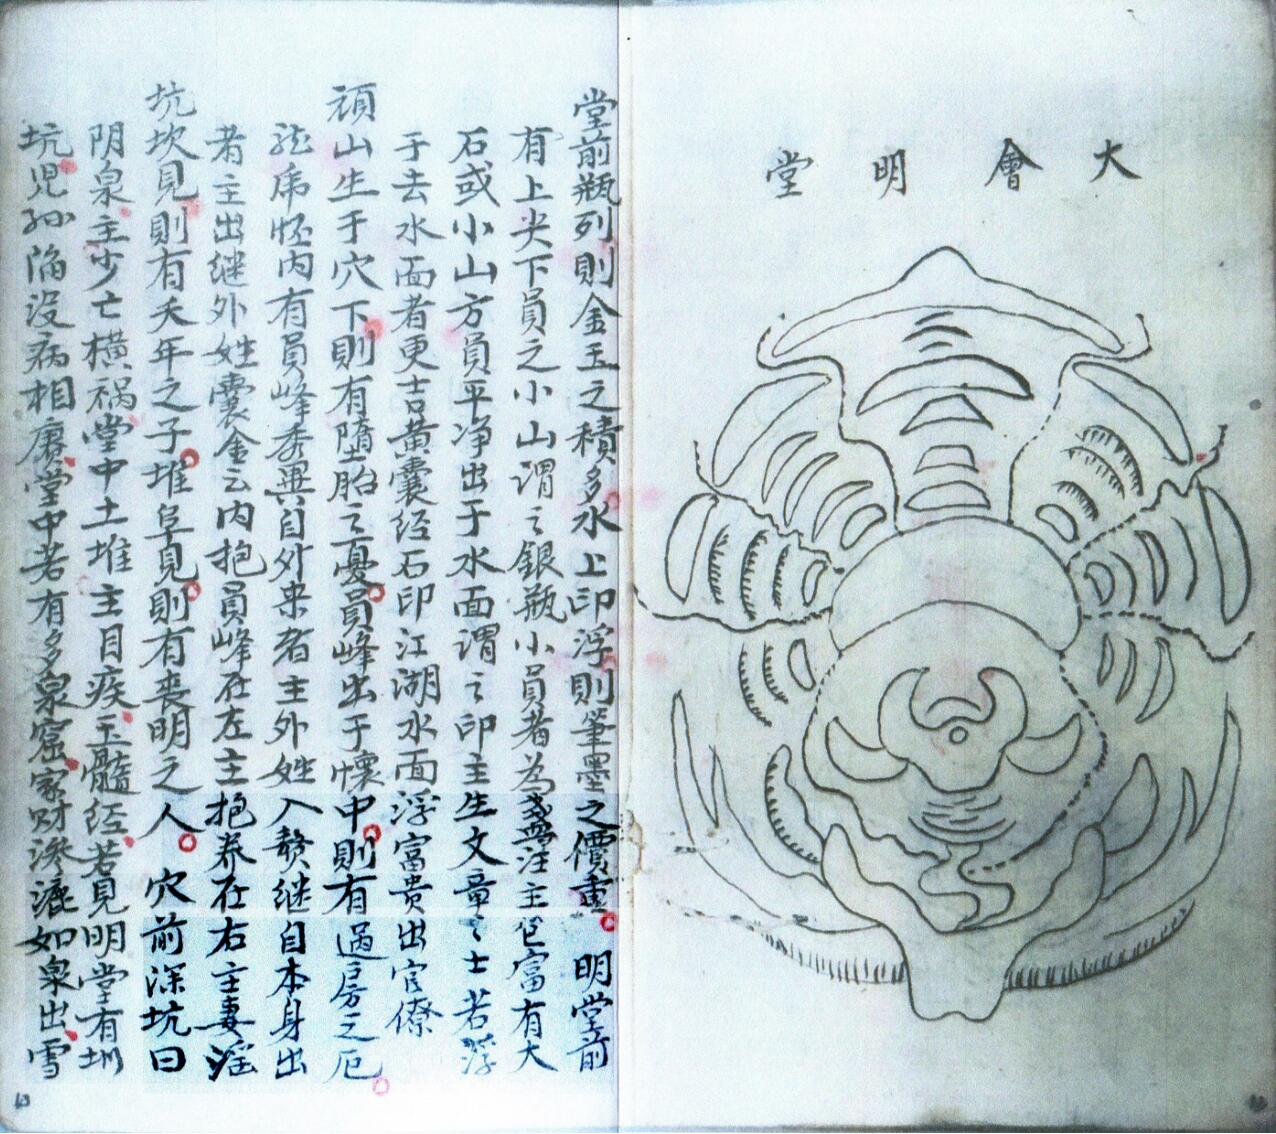 大會明堂
堂前瓶列則金玉之積多水上印浮則筆墨之價重明堂前
有上尖下員之小山謂之銀瓶小員者為盞注主邑富有大
石或小山方員平净出于水面謂之印主生文章之士若浮
于去水面者更吉黄囊经石印江湖水面浮富贵出官僚
頑山生于穴下則有墮胎之憂員峰出于懷中則有過房之厄
龙虎怪内有員峰秀異自外来者主外姓入贅继自本身出
者主出继外姓囊金云内抱員峰在左主抱养在右主妻淫
坑坎見則有夭年之子堆阜見則有喪明之人穴前深坑曰
阴泉主少亡横祸堂中土堆主目疾玉髓经若見明堂有圳
坑児孙陷没病相賡堂中若有多泉窟家财渗漉如泉出雪